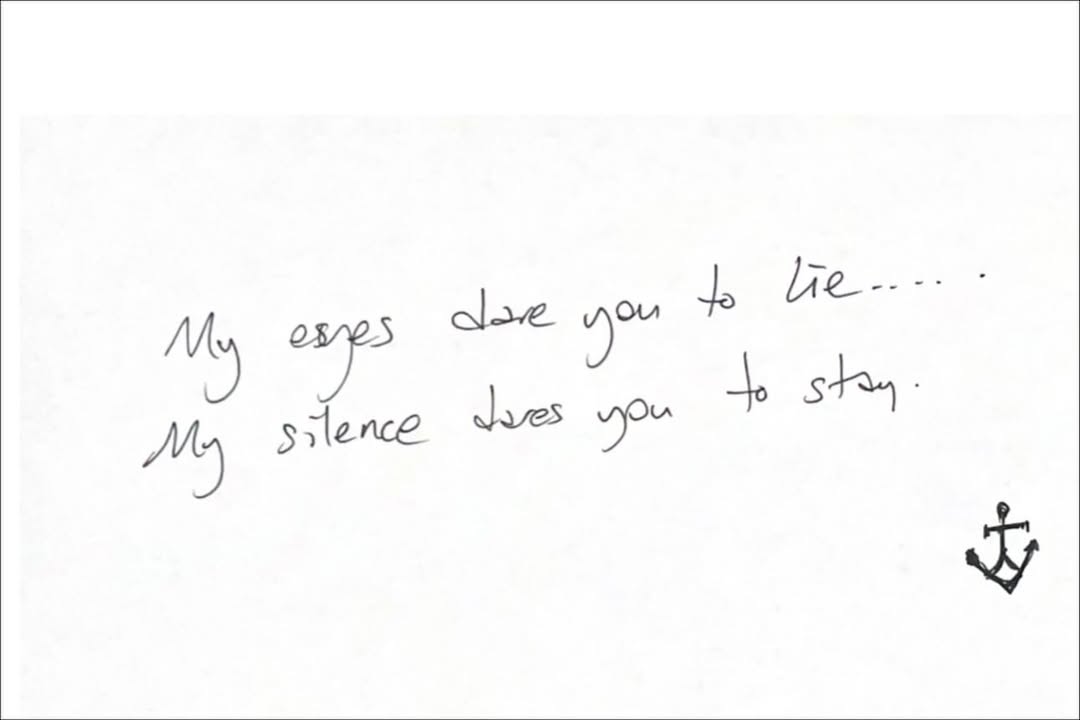 My eyes dare you to lie..... .
My silence dares you to stay.